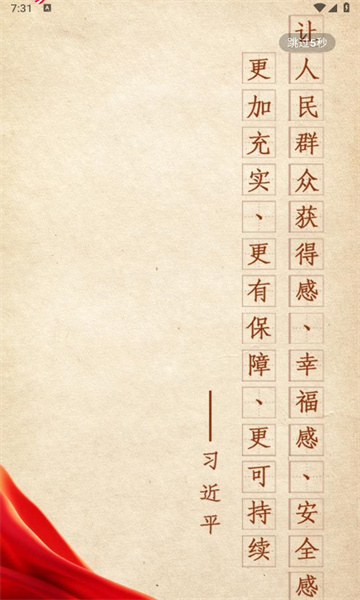 7:31
跳过5秒
让人民群众获得感、幸福感、安全感
更加充实、更有保障、更可持续
——习近平